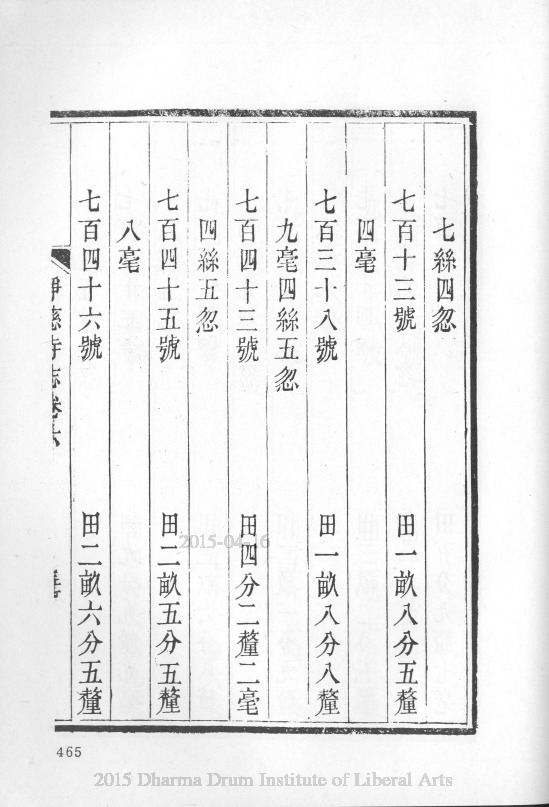 七絲四忽
七百十三號 田一畝八分五釐
四毫
七百三十八號 田一畝八分八釐
九毫四絲五忽
七百四十三號 田四分二釐二毫
四絲五忽
七百四十五號 田二畝五分五釐
八毫
七百四十六號 田二畝六分五釐
淨慈寺志卷六
465
2015-04-16
2015 Dharma Drum Institute of Liberal Arts